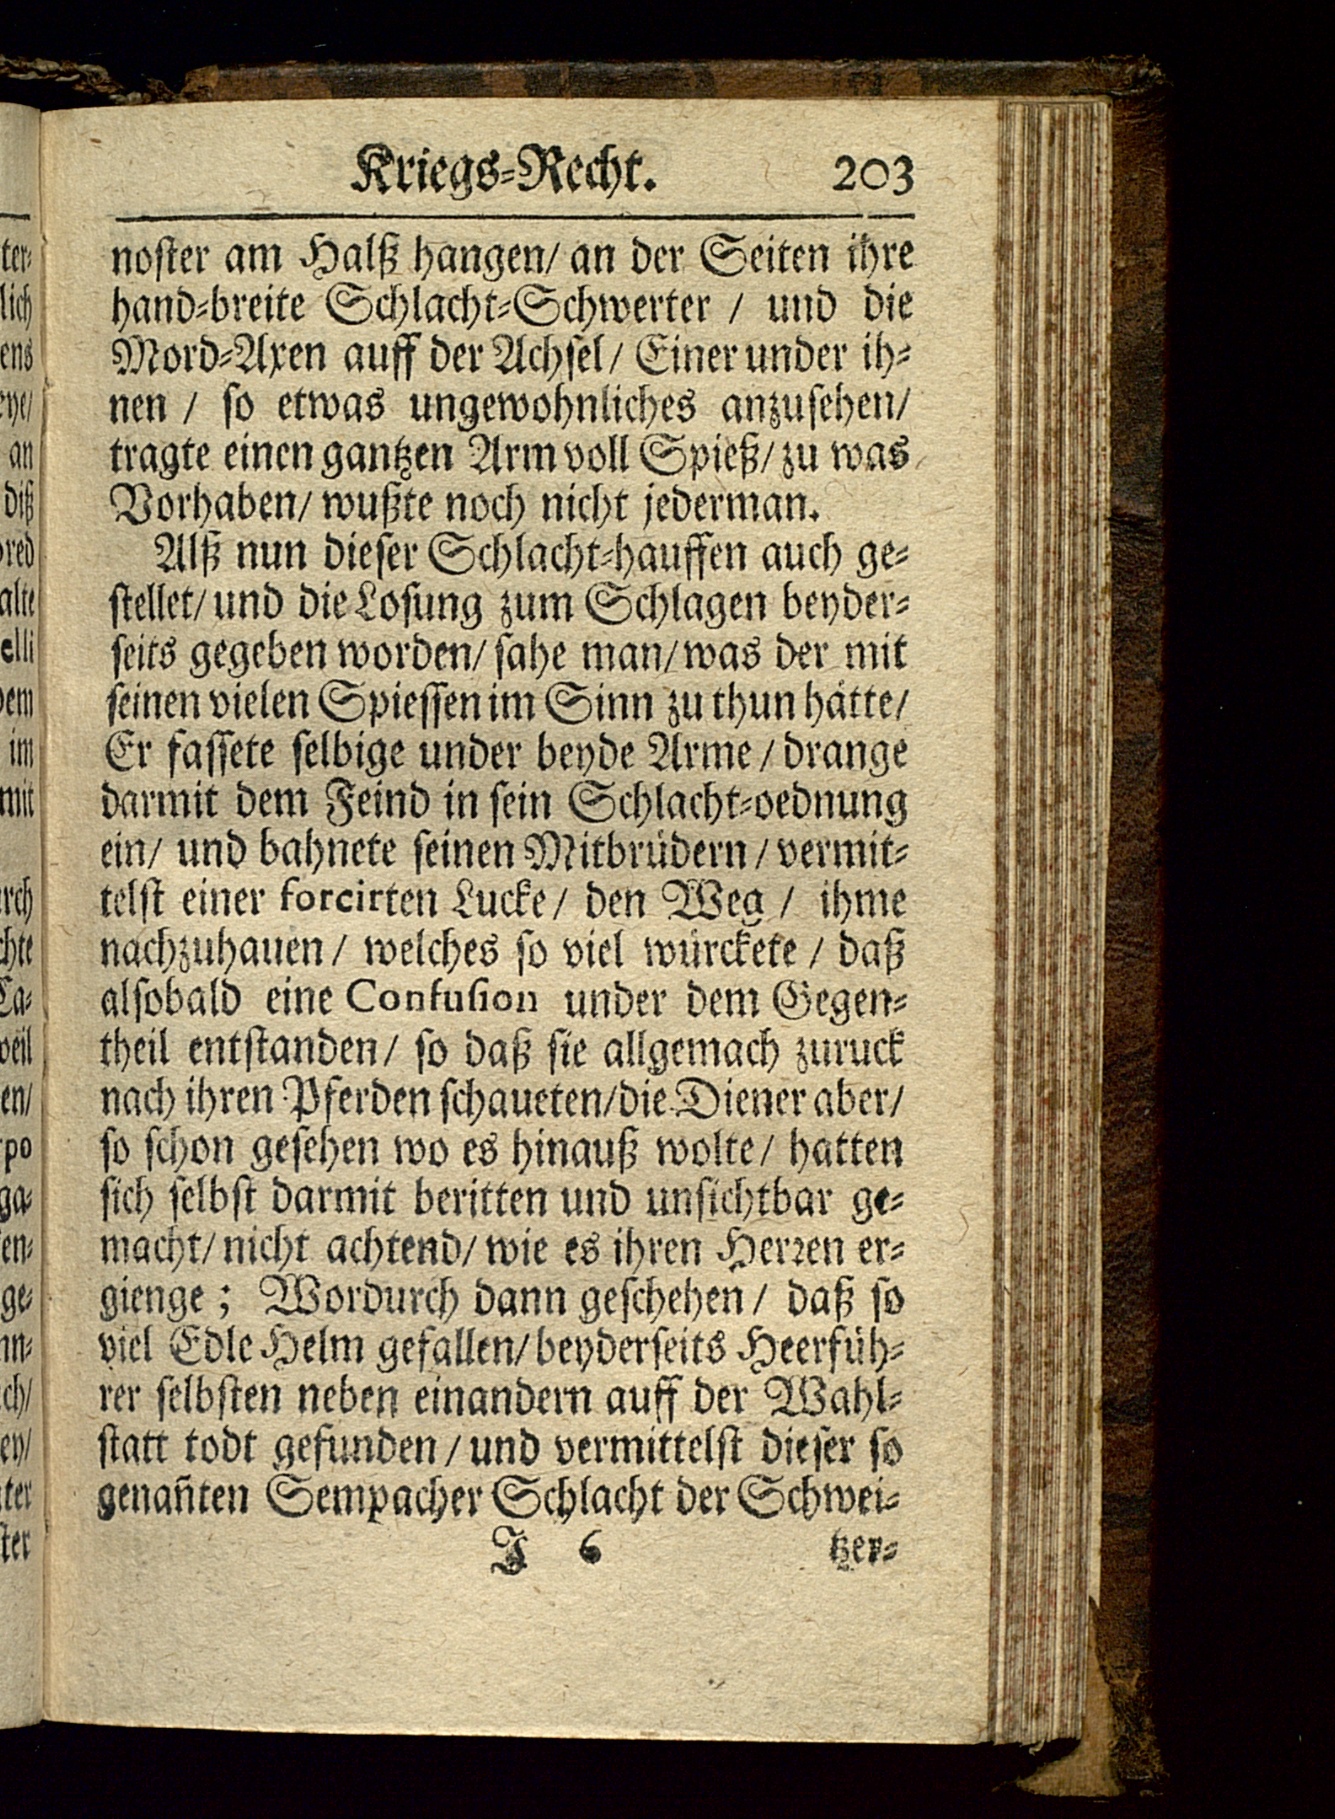 Kriegs-Recht. 203
noster am Halß hangen/ an der Seiten ihre
hand-breite Schlacht-Schwerter / und die
Mord-Axen auff der Achsel/ Einer under ih-
nen / so etwas ungewohnliches anzusehen/
tragte einen gantzen Arm voll Spieß/ zu was
Vorhaben/ wußte noch nicht jederman.
Alß nun dieser Schlacht-hauffen auch ge-
stellet/ und die Losung zum Schlagen beyder-
seits gegeben worden/ sahe man/ was der mit
seinen vielen Spiessen im Sinn zu thun hätte/
Er fassete selbige under beyde Arme / drange
darmit dem Feind in sein Schlacht-oednung
ein/ und bahnete seinen Mitbrüdern / vermit-
telst einer forcirten Lucke/ den Weg / ihme
nachzuhauen / welches so viel würckete / daß
alsobald eine Confusion under dem Gegen-
theil entstanden/ so daß sie allgemach zuruck
nach ihren Pferden schaueten/die Diener aber/
so schon gesehen wo es hinauß wolte/ hatten
sich selbst darmit beritten und unsichtbar ge-
macht/ nicht achtend/ wie es ihren Herren er-
gienge ; Wordurch dann geschehen / daß so
viel Edle Helm gefallen/ beyderseits Heerfüh-
rer selbsten neben einandern auff der Wahl-
statt todt gefunden / und vermittelst dieser so
genañten Sempacher Schlacht der Schwei-
J 6 tzer-